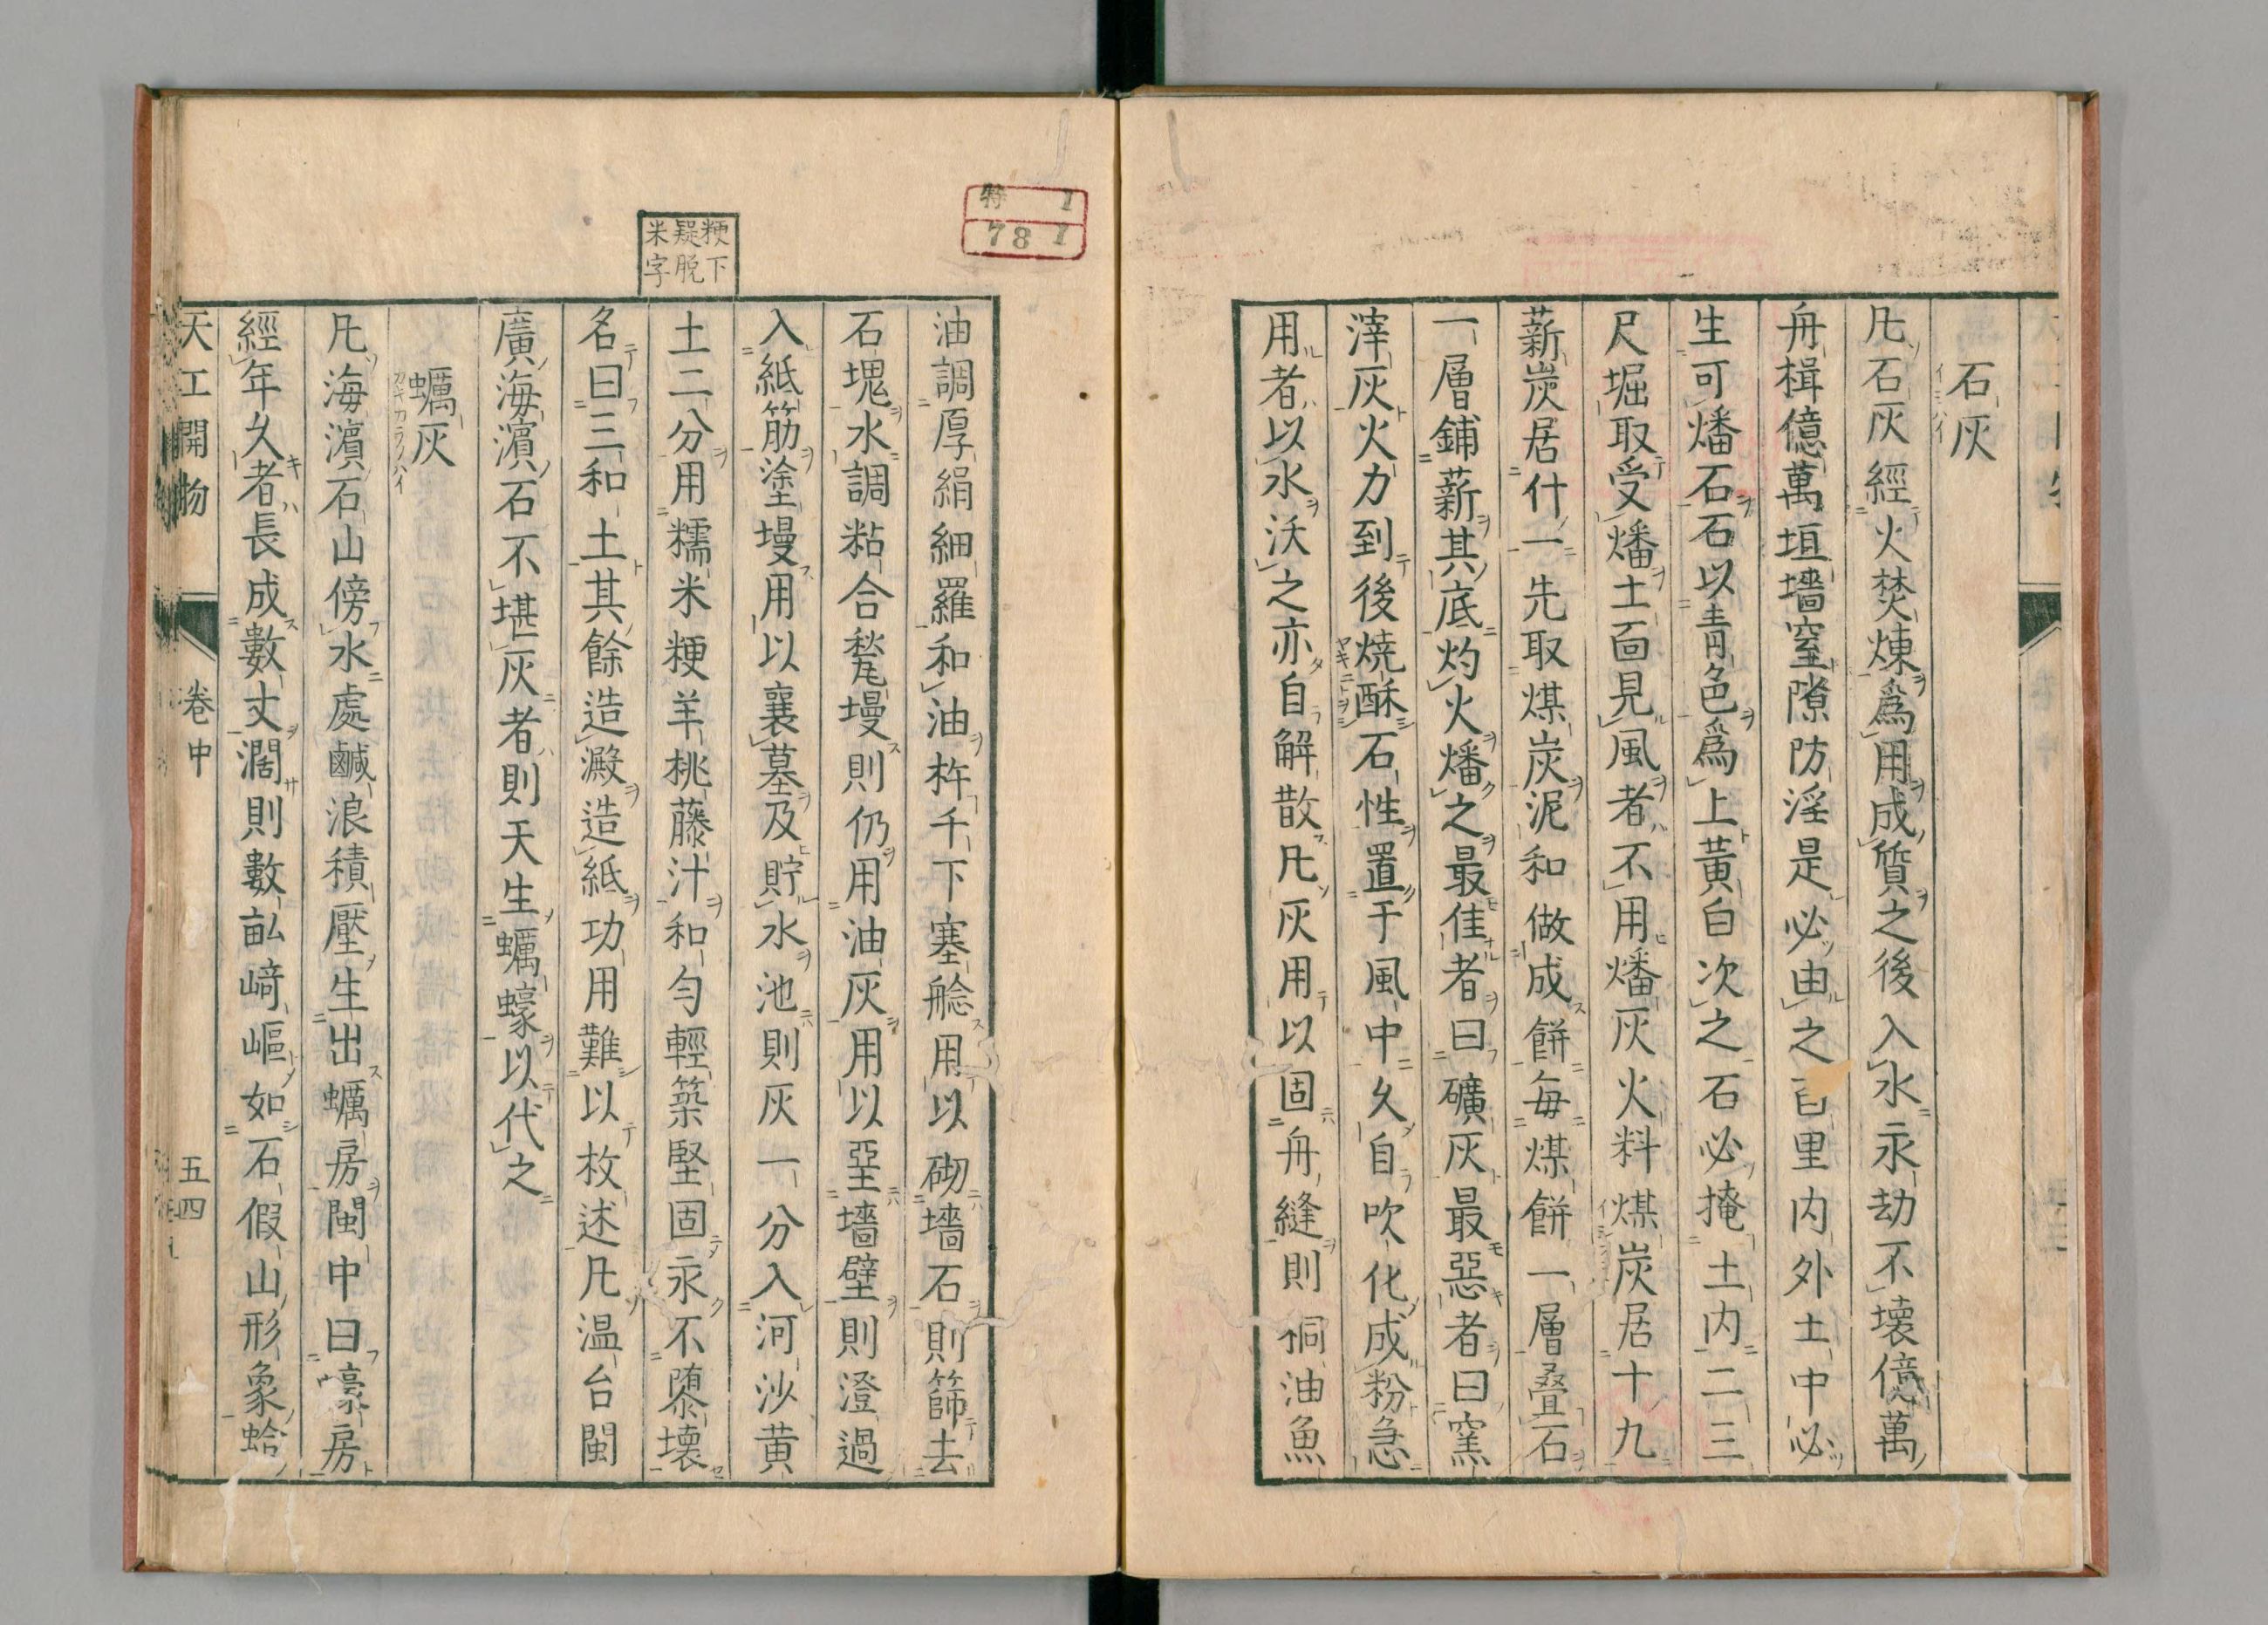 石灰
凡石灰經火焚煉爲用成質之後入水永劫不壞億萬
舟楫億萬垣墻窒隙防淫是必由之百里内外土中必
生可燔石石以青色爲上黄白次之石必掩土内二三
尺堀取受燔土面見風者不用燔灰火料煤炭居十九
薪炭居什一先取煤炭泥和做成餅每煤餅一層叠石
一層鋪薪其底灼火燔之最佳者曰礦灰最惡者曰窯
滓灰火力到後燒酥石性置于風中久自吹化成粉急
用者以水沃之亦自解散凡灰用以固舟縫則桐油魚
特 1
78 1
粳下
疑脱
米字
油調厚絹細羅和油杵千下塞艌用以砌墻石則篩去
石塊水調粘合甃墁則仍用油灰用以堊墻壁則澄過
入紙筋塗墁用以襄墓及貯水池則灰一分入河沙黄
土二分用糯米粳羊桃藤汁和匀輕築堅固永不隳壞
名曰三和土其餘造澱造紙功用難以枚述凡温台閩
廣海濱石不堪灰者則天生蠣蠔以代之
蠣灰
凡海濱石山傍水處鹹浪積壓生出蠣房閩中曰蠔房
經年久者長成數丈濶則數畝崎嶇如石假山形象蛤
天工開物
卷中
五四